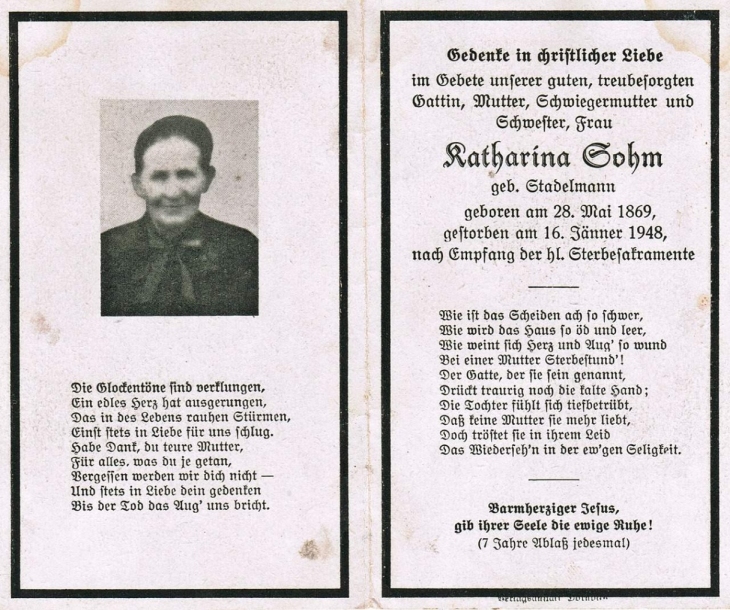 Die Glockentöne sind verklungen,
Ein edles Herz hat ausgerungen,
Das in des Lebens rauhen Stürmen,
Einst stets in Liebe für uns schlug.
Habe Dank, du teure Mutter,
Für alles, was du je getan,
Vergessen werden wir dich nicht —
Und stets in Liebe dein gedenken
Bis der Tod das Aug' uns bricht.
Gedenke in christlicher Liebe
im Gebete unserer guten, treubesorgten
Gattin, Mutter, Schwiegermutter und
Schwester, Frau
Katharina Sohm
geb. Stadelmann
geboren am 28. Mai 1869,
gestorben am 16. Jänner 1948,
nach Empfang der hl. Sterbesakramente
Wie ist das Scheiden ach so schwer,
Wie wird das Haus so öd und leer,
Wie weint sich Herz und Aug' so wund
Bei einer Mutter Sterbestund'!
Der Gatte, der sie sein genannt,
Drückt traurig noch die kalte Hand;
Die Tochter fühlt sich tiefbetrübt,
Daß keine Mutter sie mehr liebt,
Doch tröstet sie in ihrem Leid
Das Wiederseh'n in der ew'gen Seligkeit.
Barmherziger Jesus,
gib ihrer Seele die ewige Ruhe!
(7 Jahre Ablaß jedesmal)